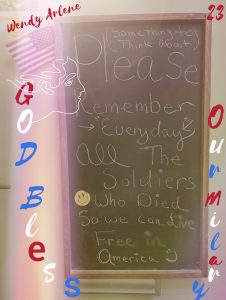 Wendy Arlene
23
(something to
Think About)
Please
Remember
→ "Everyday"
all The
Soldiers
Who Died
So we can Live
Free in
America
GOD Bless
Our milary